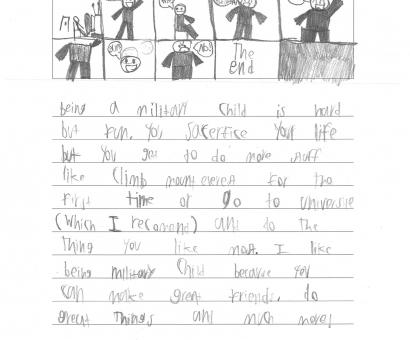 No!
The
end
being a military Child is hard
but fun. You Sacerfice Your life
but you get to do more stuff
like Climb mount everest For the
First time or go to universie
(Which I recomand) and do the
Thing you like most. I like
being military Child because you
can make great friends, do
great Things and much more!